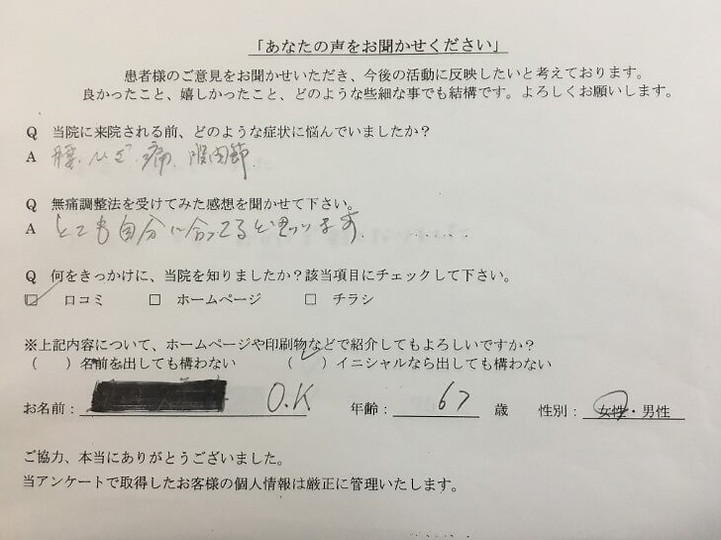 「あなたの声をお聞かせください」
患者様のご意見をお聞かせいただき、今後の活動に反映したいと考えております。
良かったこと、嬉しかったこと、どのような些細な事でも結構です。よろしくお願いします。
Q 当院に来院される前、どのような症状に悩んでいましたか？
A 腰、ひざ、痛、股関節
Q 無痛調整法を受けてみた感想を聞かせて下さい。
A とても自分に合ってると思います。……
Q 何をきっかけに、当院を知りましたか？該当項目にチェックして下さい。
☑ 口コミ □ ホームページ □ チラシ
※上記内容について、ホームページや印刷物などで紹介してもよろしいですか？
（ ）名前を出しても構わない （✓）イニシャルなら出しても構わない
お名前： O.K 年齢： 67 歳 性別： 女性・男性
ご協力、本当にありがとうございました。
当アンケートで取得したお客様の個人情報は厳正に管理いたします。